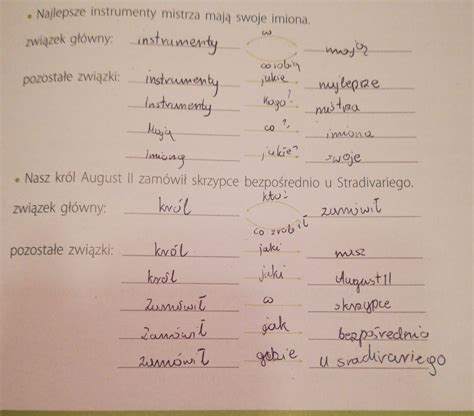 • Najlepsze instrumenty mistrza mają swoje imiona.
co
związek główny: instrumenty mają
co robią
pozostałe związki: instrumenty jakie najlepsze
Instrumenty kogo? mistrza
Mają co? imiona
Imiona jakie? swoje
• Nasz król August II zamówił skrzypce bezpośrednio u Stradivariego.
kto?
związek główny: król zamówił
co zrobił
pozostałe związki: król jaki nasz
król jaki August II
Zamówił co skrzypce
Zamówił jak bezpośrednio
zamówił gdzie u sradivariego